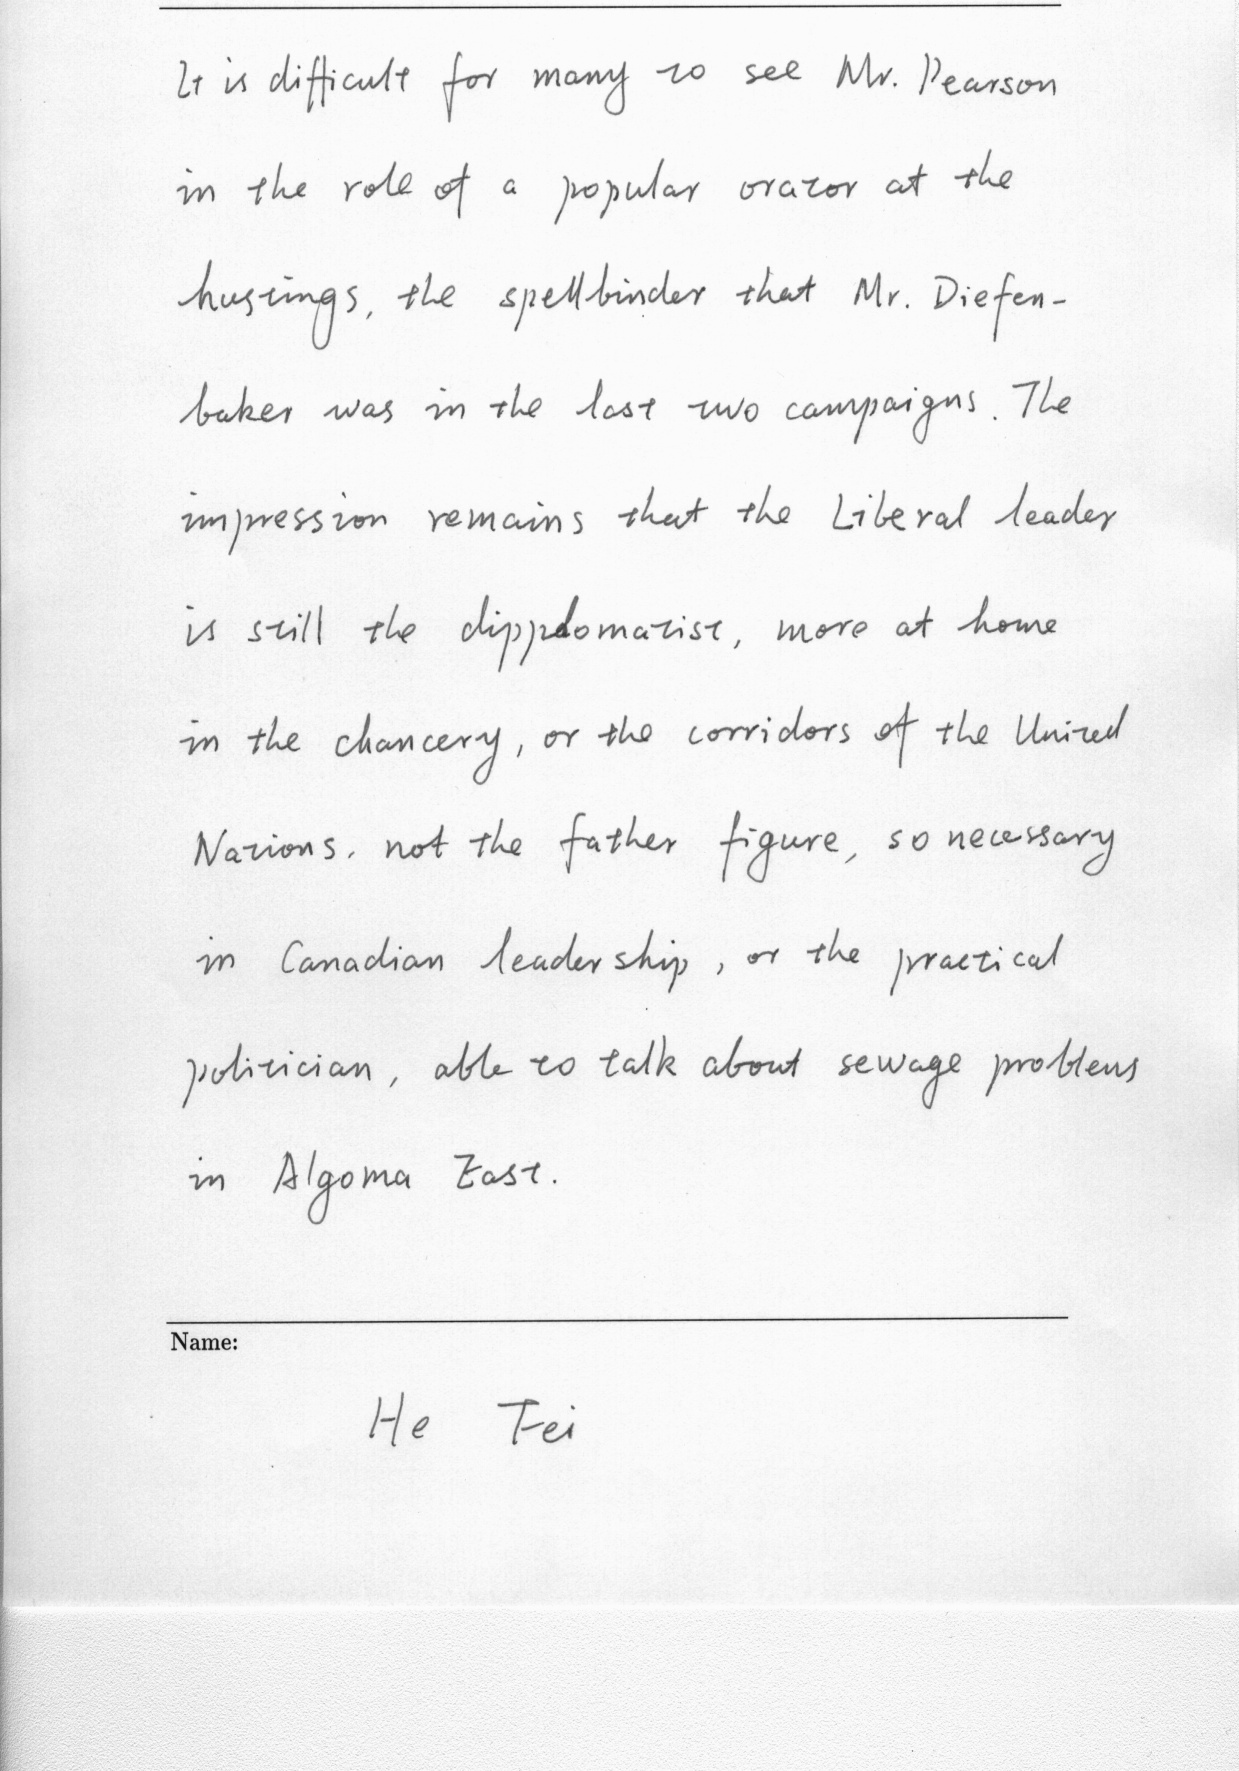 It is difficult for many to see Mr. Pearson
in the role of a popular orator at the
hustings, the spellbinder that Mr. Diefen-
baker was in the last two campaigns. The
impression remains that the Liberal leader
is still the dipplomatist, more at home
in the chancery, or the corridors of the United
Nations. not the father figure, so necessary
in Canadian leadership, or the practical
politician, able to talk about sewage problems
in Algoma East.
Name:
He Fei